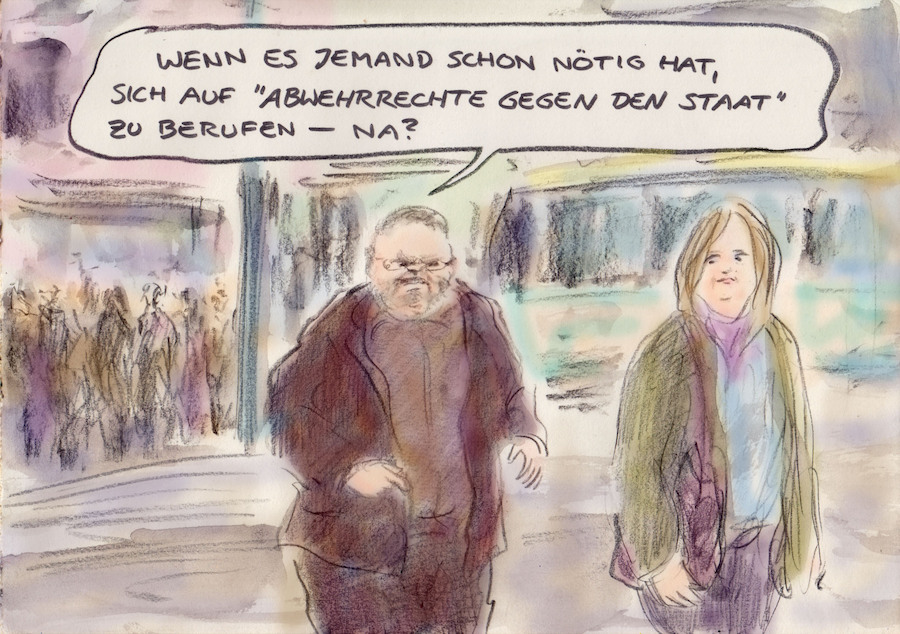 WENN ES JEMAND SCHON NÖTIG HAT,
SICH AUF "ABWEHRRECHTE GEGEN DEN STAAT"
ZU BERUFEN — NA?